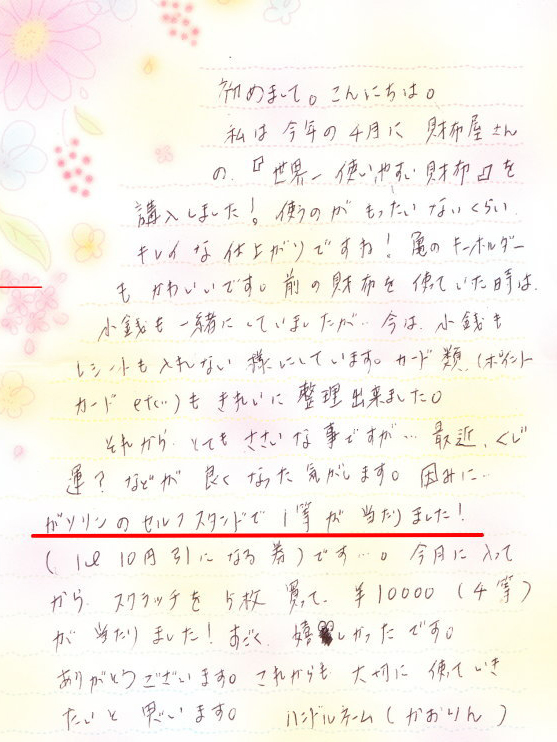 初めまして。こんにちは。
私は今年の4月に財布屋さん
の『世界一使いやすい財布』を
購入しました！使うのがもったいないくらい
キレイな仕上がりですね！亀のキーホルダー
もかわいいです。前の財布を使っていた時は、
小銭も一緒にしていましたが…今は、小銭も
レシートも入れない様にしています。カード類（ポイント
カードetc…）もきれいに整理出来ました。
それから、とてもささいな事ですが…最近、くじ
運？などが良くなった気がします。因みに…
ガソリンのセルフスタンドで1等が当たりました！
（1ℓ10円引になる券）です…。今月に入って
から、スクラッチを5枚買って、￥10000（4等）
が当たりました！すごく、嬉しかったです。
ありがとうございます。これからも大切に使っていき
たいと思います。 ハンドルネーム（かおりん）